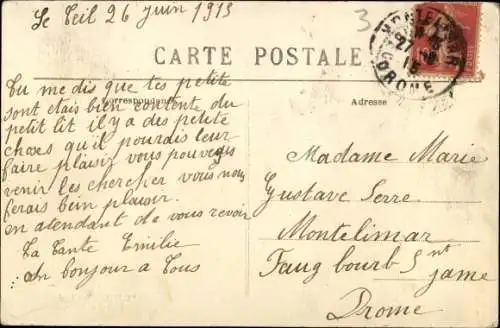 Le Teil 26 juin 1913
3
CARTE POSTALE
MONTELIMAR
27
DROME
Correspondance
Adresse
Tu me dis que tes petite
sont etais bien contente du
petit lit il y a des petite
choses qu'il pourais leur
faire plaisir vous pouvegs
venir les chercher vous nous
ferais bein plaisir
en atendant de vous revoir
Ta Tante Emilie
un bonjour a Tous
Madame Marie
Gustave Serre
Montelimar
Faug bourb Snt jame
Drome